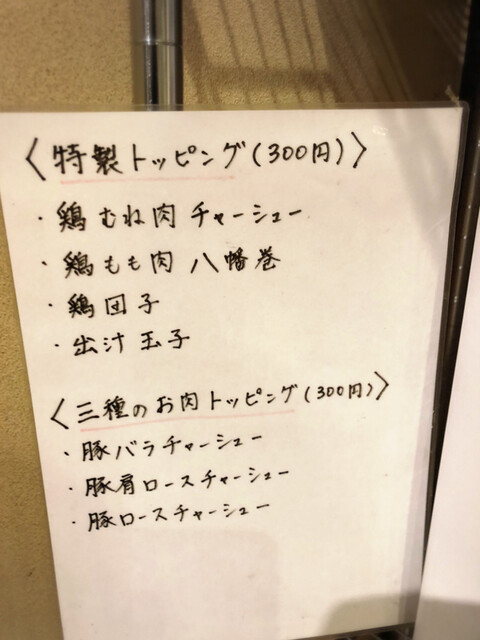 〈特製トッピング(300円)〉
・鶏むね肉 チャーシュー
・鶏もも肉 八幡巻
・鶏団子
・出汁玉子
〈三種のお肉トッピング(300円)〉
・豚バラチャーシュー
・豚肩ロースチャーシュー
・豚ロースチャーシュー